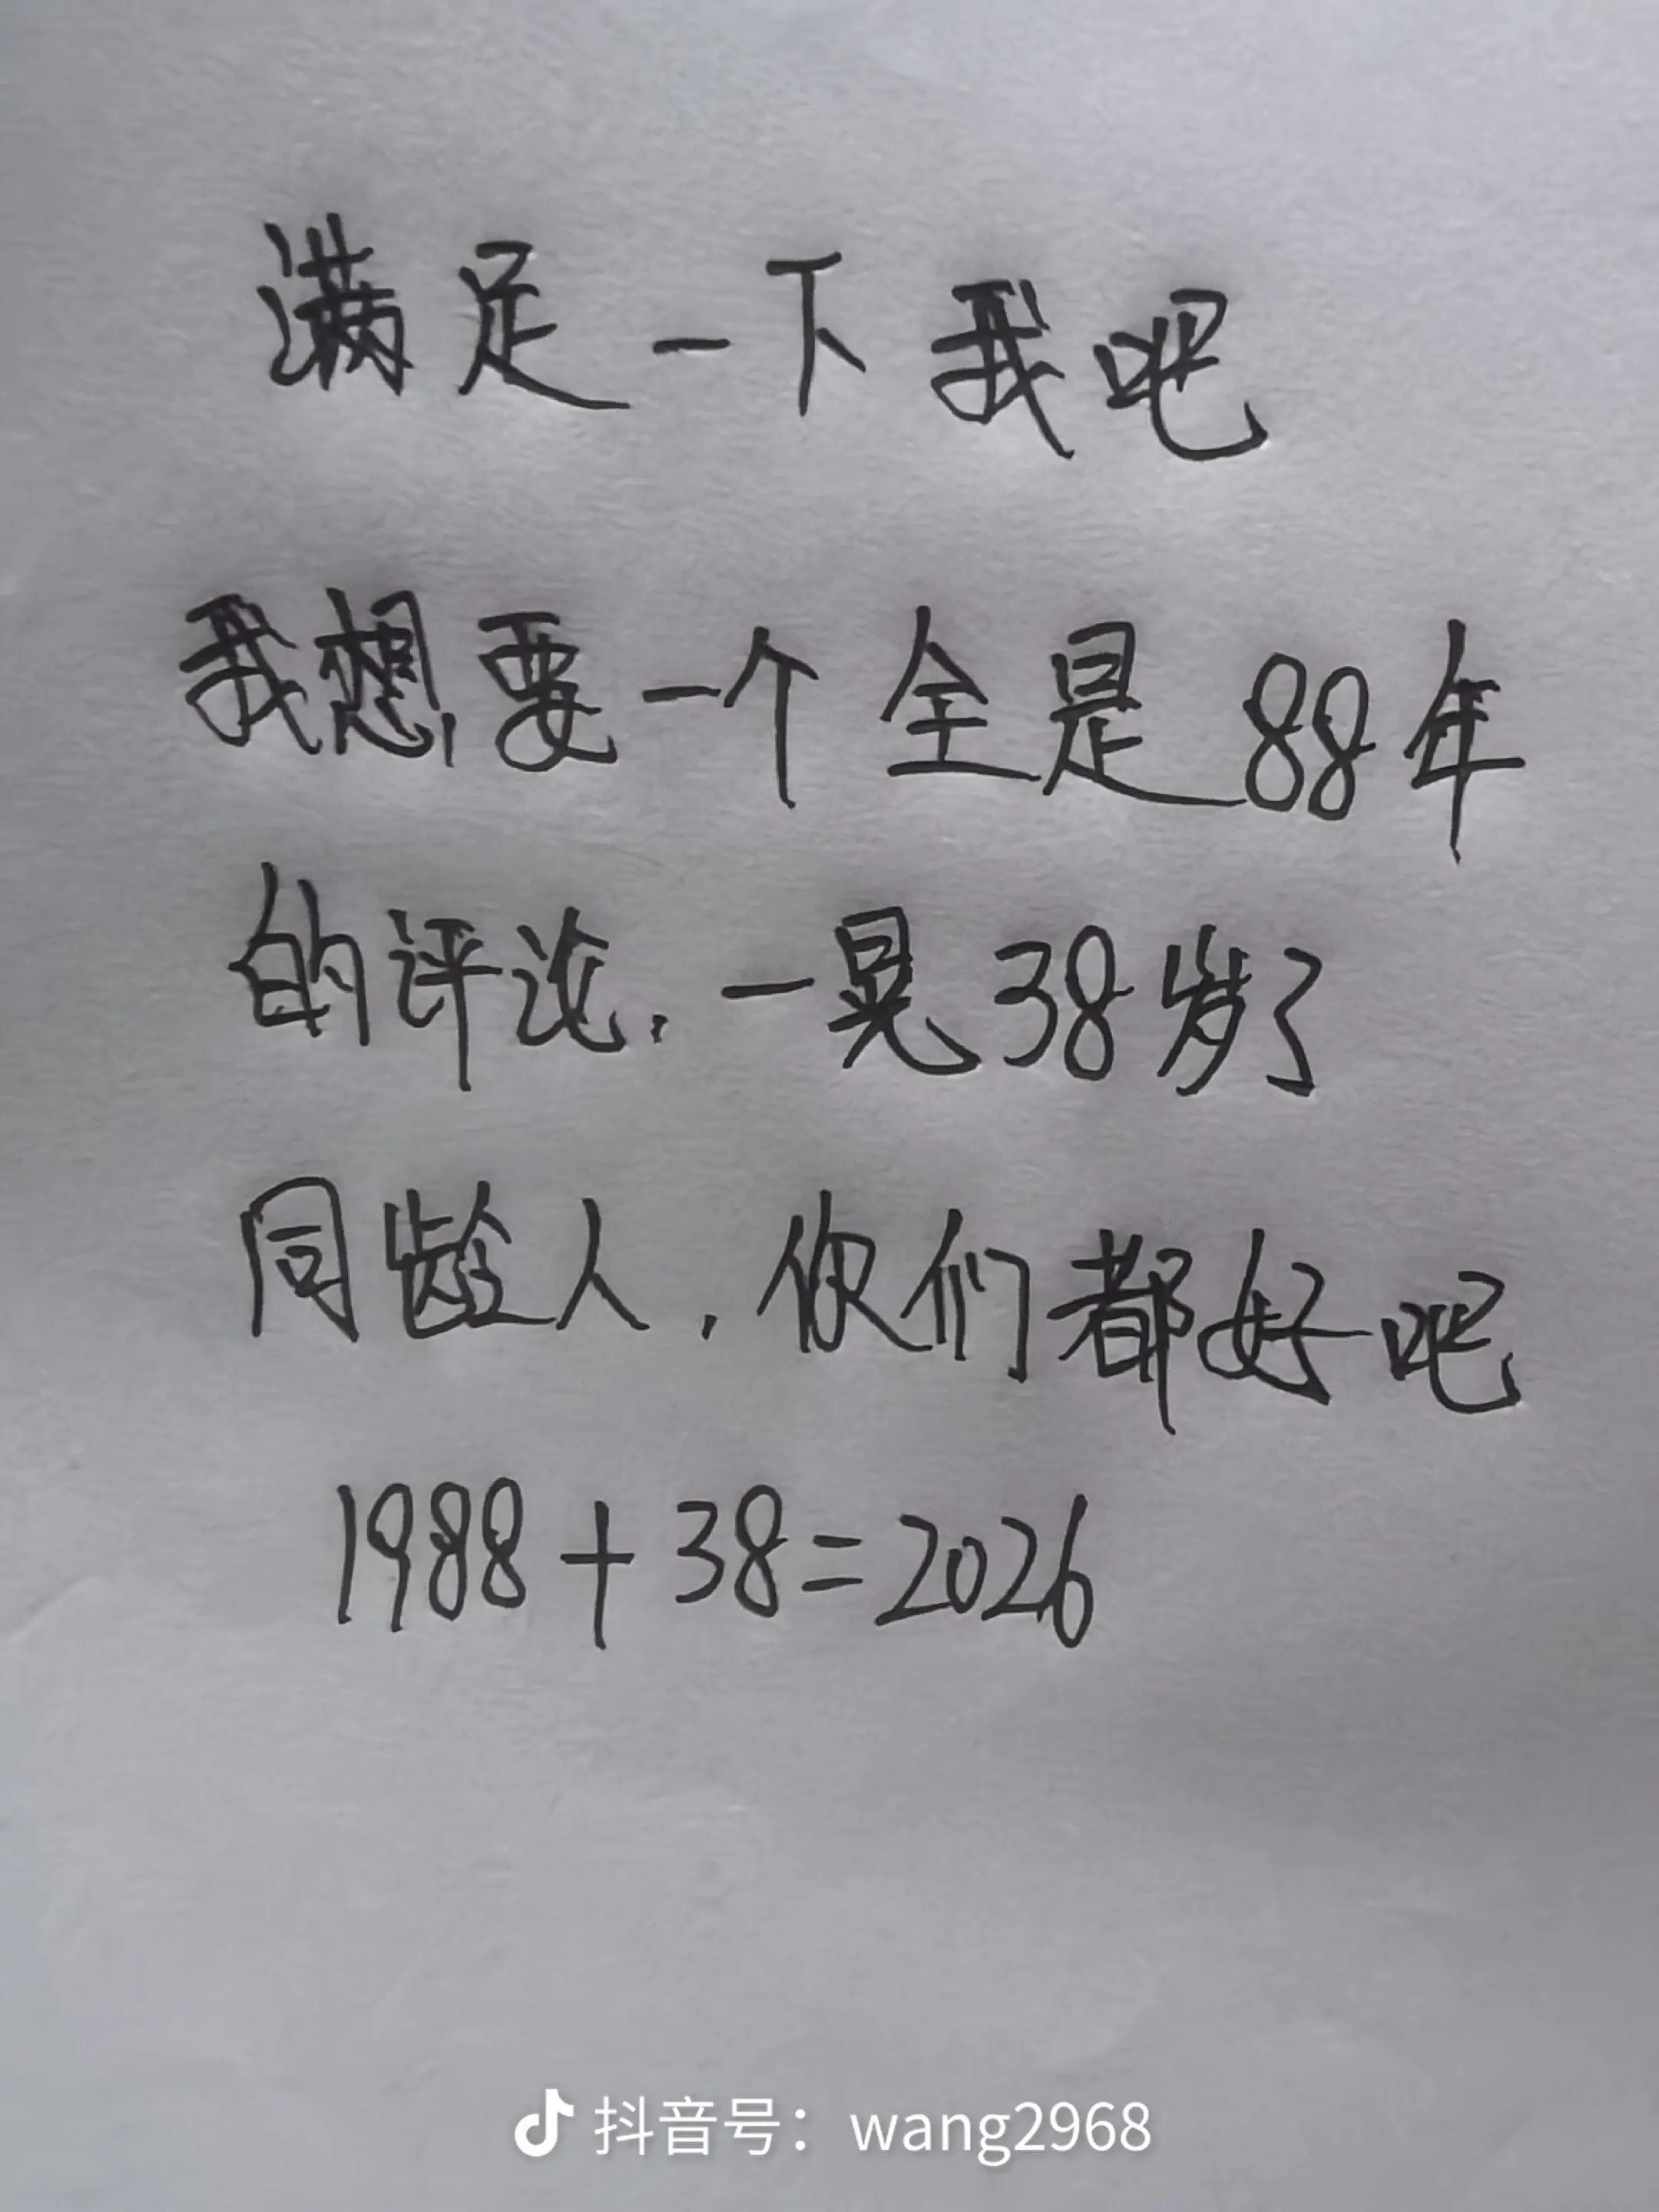 满足一下我吧
我想要一个全是88年
的评论,一晃38岁了
同龄人,你们都好吧
1988+38=2026
抖音号：wang2968